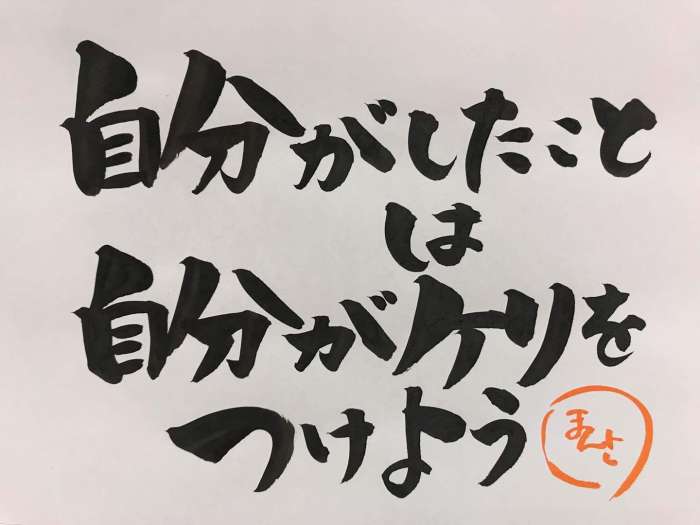 自分がしたこと
は
自分がケリを
つけよう